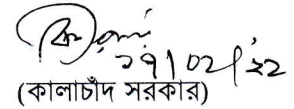 ১৭/০২/২২
(কালাচাঁদ সরকার)